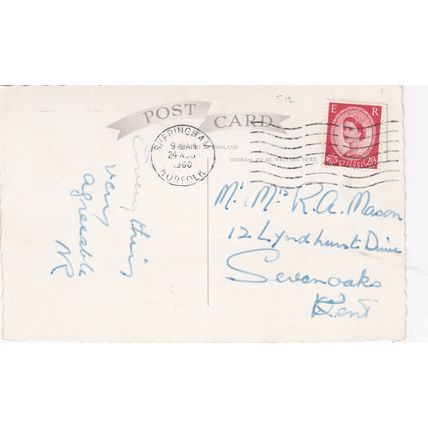 512
POST CARD
SHERINGHAM
9-AM
24 AUG
1960
NORFOLK
ENGLAND
ADDRESS TO BE WRITTEN HERE
E R
POSTAGE
2½D
everything
very
agreeable
NR
Mr. Mrs R.A. Mason
12 Lyndhurst Drive
Sevenoaks
Kent